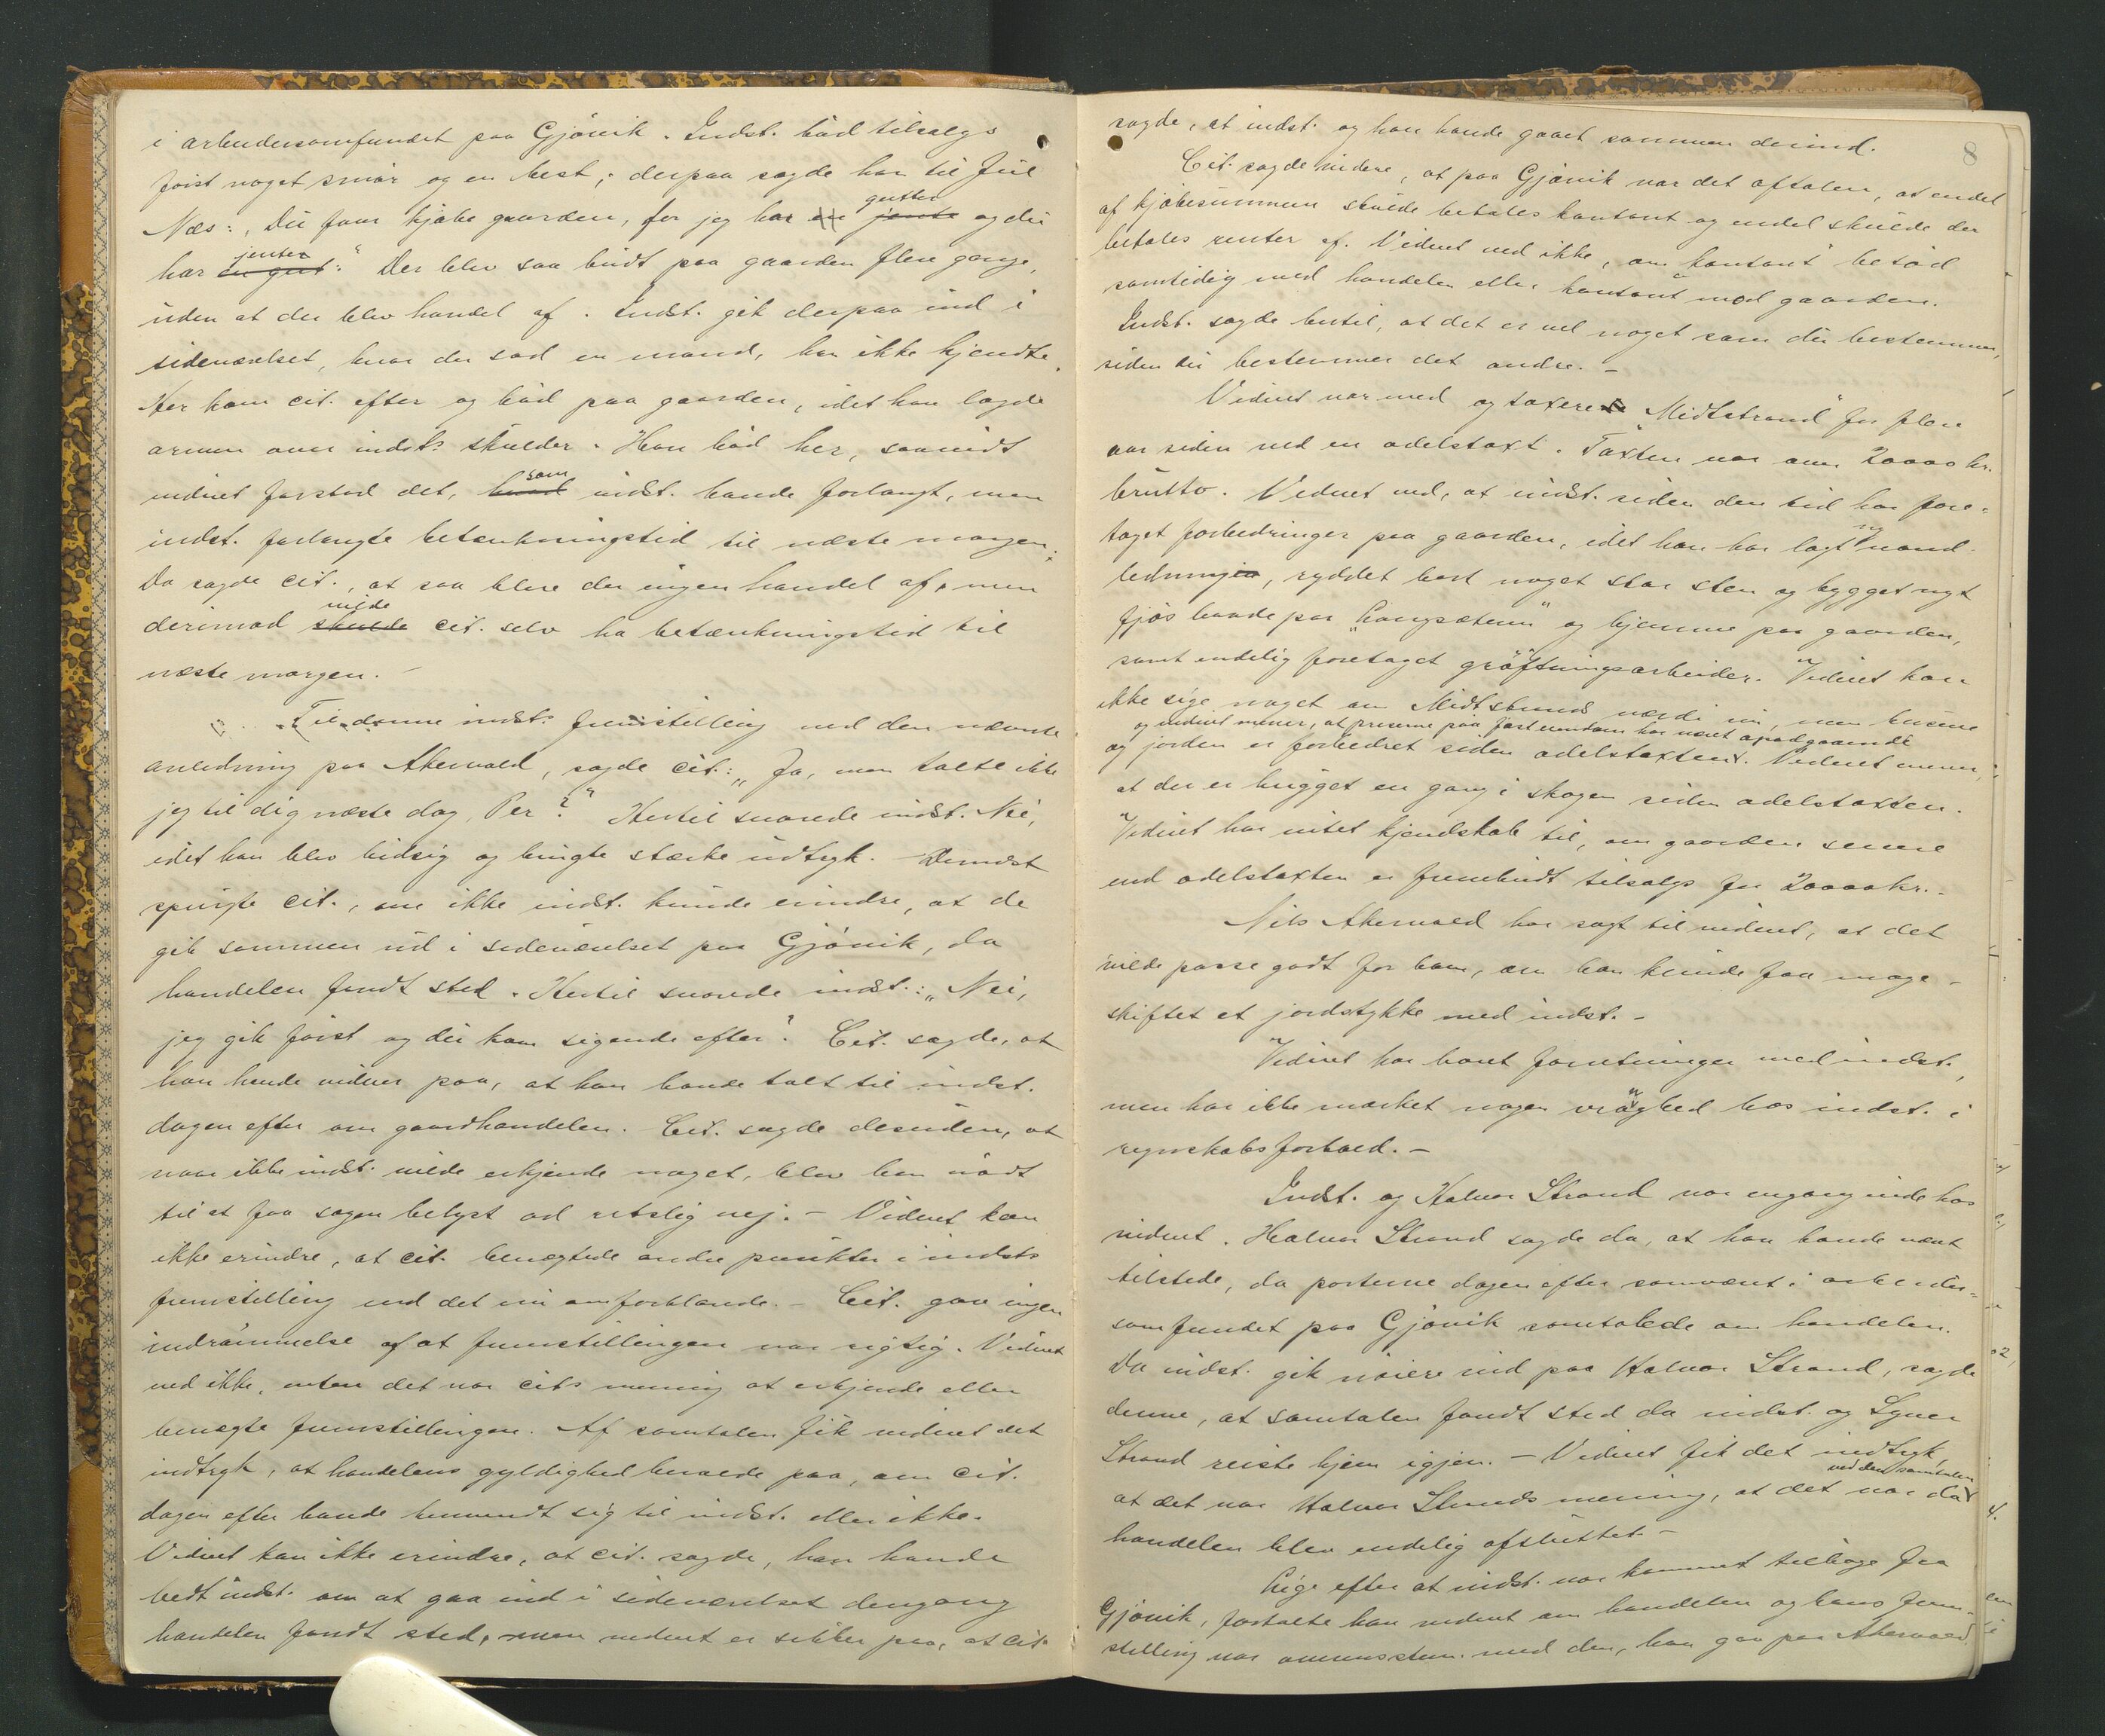 i arbeidersamfundet paa Gjøvik. Indst. bød tilsalgs
først noget smør og en hest; derpaa sagde han til Juel
Næs: "Du faar kjøbe gaarden, for jeg har en jente gutter og du
har en gut jenter." Der blev saa budt paa gaarden flere gange,
uden at der blev handel af. Indst. gik derpaa ind i
sideværelset, hvor der sad en mand, han ikke kjendte.
Her kom cit. efter og bød paa gaarden, idet han lagde
armen over indst.s skulder. Han bød her, saavidt
vidnet forstod det, hvad som indst. havde forlangt, men
indst. forlangte betænkningstid til næste morgen.
Da sagde cit., at saa blev der ingen handel af, men
derimod skulde vilde cit. selv ha betænkningstid til
næste morgen. –
Til denne indst.s fremstilling ved den nævnte
anledning paa Akervold, sagde cit.: "Ja, men talte ikke
jeg til dig næste dag, Per?" Hertil svarede indst. Nei,
idet han blev hidsig og brugte stærke udtryk. – Dernæst
spurgte cit., om ikke indst. kunde erindre, at de
gik sammen ud i sideværelset paa Gjøvik, da
handelen fandt sted. Hertil svarede indst.: "Nei,
jeg gik først og du kom sigende efter". Cit. sagde, at
han havde vidner paa, at han havde talt til indst.
dagen efter om gaardhandelen. Cit. sagde desuden, at
naar ikke indst. vilde erkjende noget, blev han nødt
til at faa sagen belyst ad retslig vej. – Vidnet kan
ikke erindre, at cit. benægtede andre punkter i indst.s
fremstilling end det nu omforklarede. – Cit. gav ingen
indrømmelse af at fremstillingen var rigtig. Vidnet
ved ikke, enten det var cits mening at erkjende eller
benægte fremstillingen. Af samtalen fik vidnet det
indtryk, at handelens gyldighed beroede paa, om cit.
dagen efter havde henvendt sig til indst. eller ikke.
Vidnet kan ikke erindre, at cit. sagde, han havde
bedt indst. om at gaa ind i sideværelset dengang
handelen fandt sted, men vidnet er sikker paa, at cit.
8
sagde, at indst. og han havde gaaet sammen derind.
Cit. sagde videre, at paa Gjøvik var det aftalen, at endel
af kjøbesummen skulde betales kontant og endel skulde der
betales renter af. Vidnet ved ikke, om "kontant" betød
samtidig med handelen eller kontant mod gaarden.
Indst. sagde hertil, at det er vel noget som du bestemmer,
siden du bestemmer det andre. –
Vidnet var med og taxerede "Midtstrand" for flere
aar siden ved en odelstaxt. Taxten var om 20000 kr.
brutto. Vidnet ved, at indst. siden den tid har fore-
taget forbedringer paa gaarden, idet han har lagt ny vand-
ledning, ryddet bort noget stor sten og bygget nyt
fjøs baade paa "Langsæteren" og hjemme paa gaarden,
samt endelig foretaget grøftningsarbeider. Vidnet kan
ikke sige noget om Midtstrands værdi nu, men husene
og vidnet mener, at priserne paa fast eiendom har været opadgaaende
og jorden er forbedret siden odelstaxten. Vidnet mener,
at der er hugget en gang i skogen siden odelstaxten.
Vidnet har intet kjendskab til, om gaarden senere
end odelstaxten er frembudt tilsalgs for 20000 kr. –
Nils Akervold har sagt til vidnet, at det
vilde passe godt for ham, om han kunde faa mage-
skiftet et jordstykke med indst. –
Vidnet har havt forretninger med indst.,
men har ikke mærket nogen vranghed hos indst. i
regnskabsforhold. –
Indst. og Halvor Strand var engang inde hos
vidnet. Halvor Strand sagde da, at han havde været
tilstede, da parterne dagen efter samværet i arbeider-
samfundet paa Gjøvik samtalede om handelen.
Da indst. gik nøiere ind paa Halvor Strand, sagde
denne, at samtalen fandt sted da indst. og Syver
Strand reiste hjem igjen. – Vidnet fik det indtryk,
at det var Halvor Strands mening, at det var da ved den samtalen
handelen blev endelig afsluttet. –
Lige efter at indst. var kommet tilbage fra
Gjøvik, fortalte han vidnet om handelen og hans frem-
stilling var overensstem. med den, han gav paa Akervold.